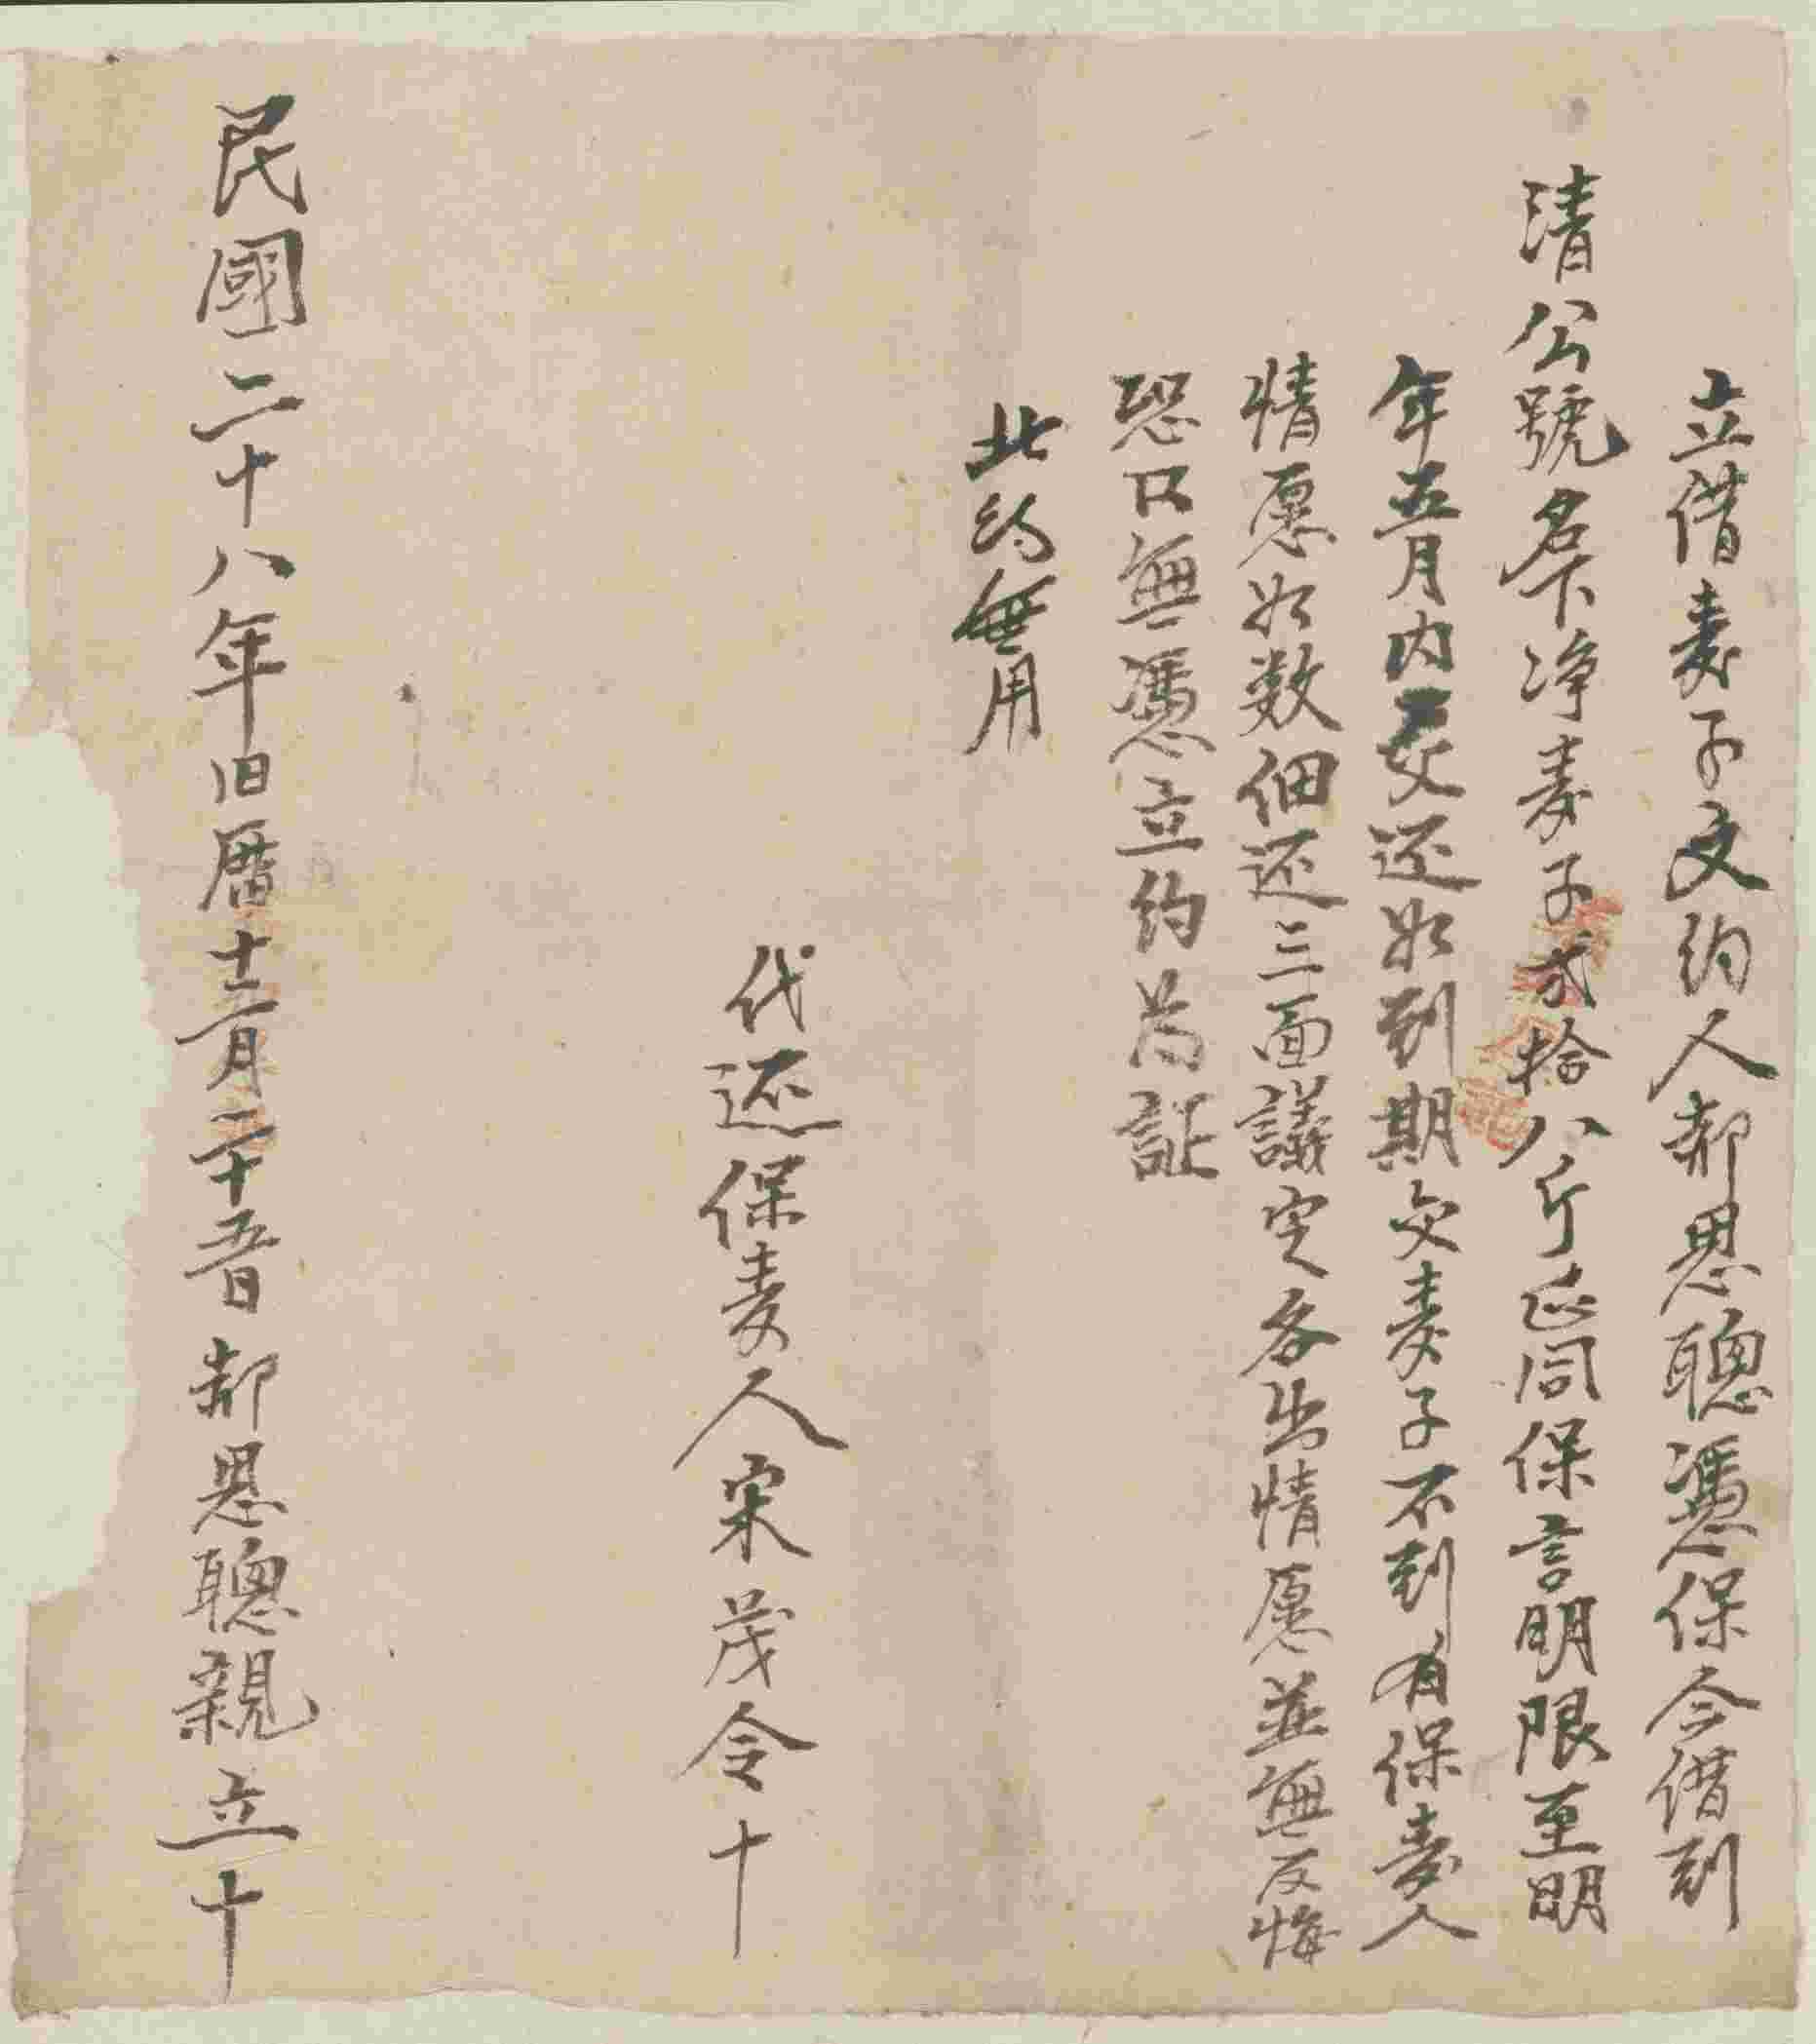 立借麦子文约人郝思聰憑保今借到
清公號名下净麦子弍拾八斤正同保言明限至明
年五月内交还如到期交麦子不到有保麦人
情愿如数佃还三面議定各出情愿並無反悔
恐口無憑立约为証
此约無用
代还保麦人宋茂令十
民國二十八年旧曆十二月二十五日郝思聰親立十